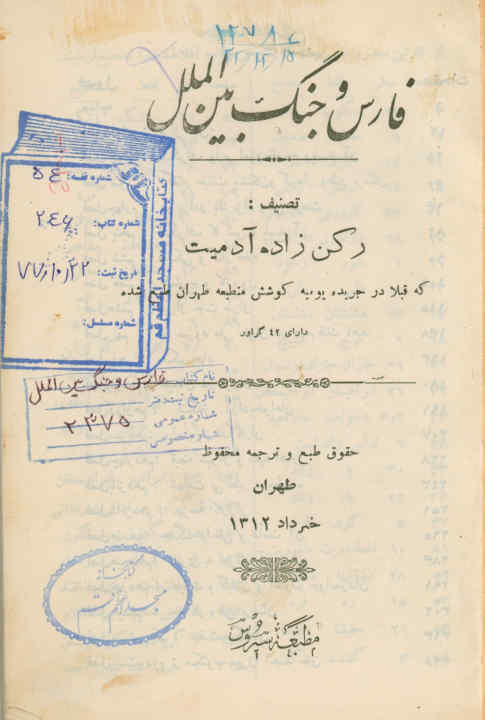 ۱۲۷۸۷
۲۲/۱۲/۱۵
فارس و جنگ بین الملل
تصنیف :
رکن زاده آدمیت
که قبلا در جریده یومیه کوشش منطبعه طهران طبع شده
دارای ۴۲ گراور
شماره قفسه: ۵۴
شماره کتاب: ۲۴۶
تاریخ ثبت: ۷۷/۱۰/۲۲
شماره مسلسل:
کتابخانه مسجد اعظم قم
نام کتاب فارس و جنگ بین الملل
تاریخ ثبت دفتر
شماره عمومی ۲۳۷۵
شماره خصوصی
حقوق طبع و ترجمه محفوظ
طهران
خرداد ۱۳۱۲
کتابخانه
مسجد اعظم قم
مطبعه سیروس